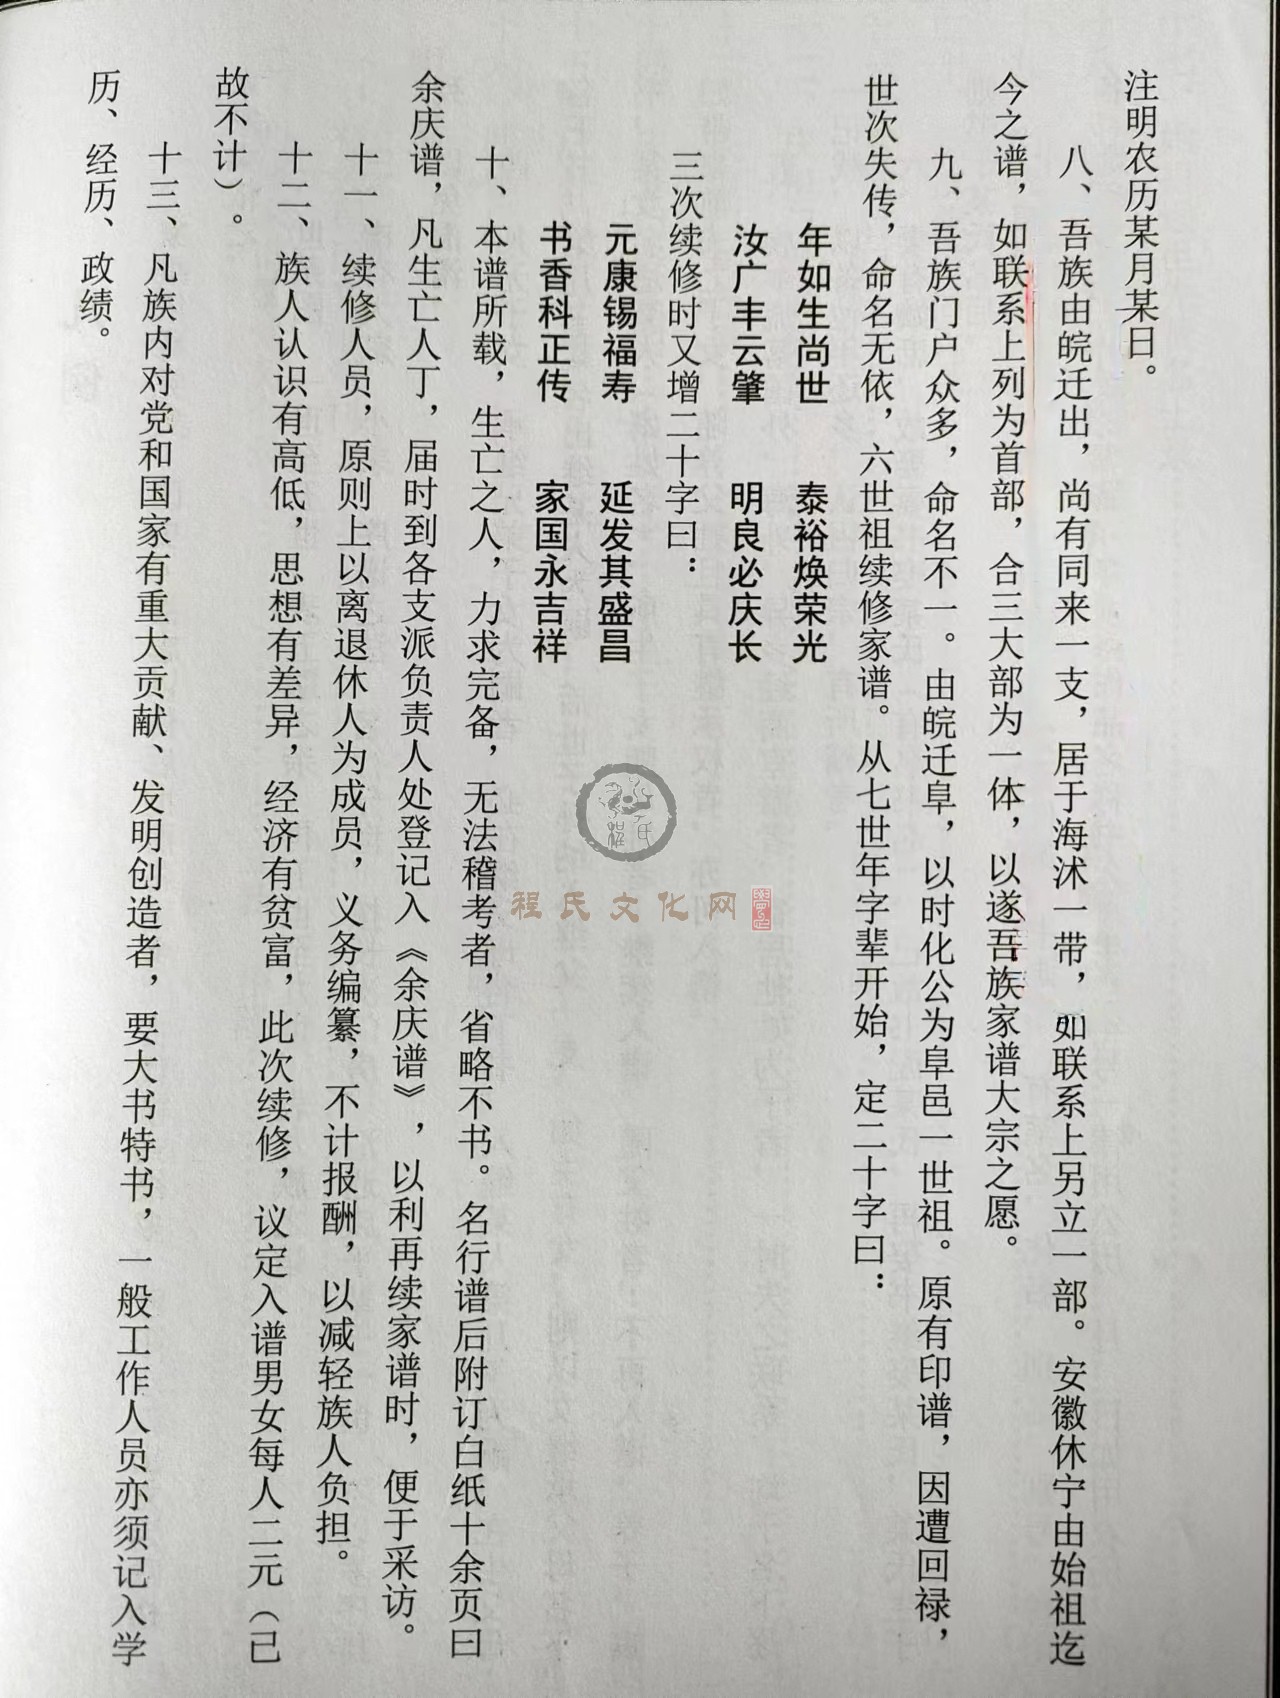 注明农历某月某日。
八、吾族由皖迁出，尚有同来一支，居于海沭一带，如联系上另立一部。安徽休宁由始祖迄
今之谱，如联系上列为首部，合三大部为一体，以遂吾族家谱大宗之愿。
九、吾族门户众多，命名不一。由皖迁阜，以时化公为阜邑一世祖。原有印谱，因遭回禄，
世次失传，命名无依，六世祖续修家谱。从七世年字辈开始，定二十字曰：
年如生尚世　泰裕焕荣光
汝广丰云肇　明良必庆长
三次续修时又增二十字曰：
元康锡福寿　延发其盛昌
书香科正传　家国永吉祥
十、本谱所载，生亡之人，力求完备，无法稽考者，省略不书。名行谱后附订白纸十余页曰
余庆谱，凡生亡人丁，届时到各支派负责人处登记入《余庆谱》，以利再续家谱时，便于采访。
十一、续修人员，原则上以离退休人为成员，义务编纂，不计报酬，以减轻族人负担。
十二、族人认识有高低，思想有差异，经济有贫富，此次续修，议定入谱男女每人二元（已
故不计）。
十三、凡族内对党和国家有重大贡献、发明创造者，要大书特书，一般工作人员亦须记入学
历、经历、政绩。
程氏文化网